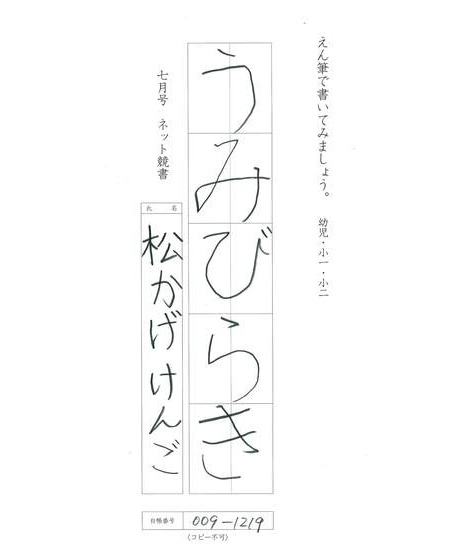 えん筆で書いてみましょう。 幼児・小一・小二
うみびらき
七月号 ネット競書
氏名
松かげけんご
台帳番号 009-1219
(コピー不可)